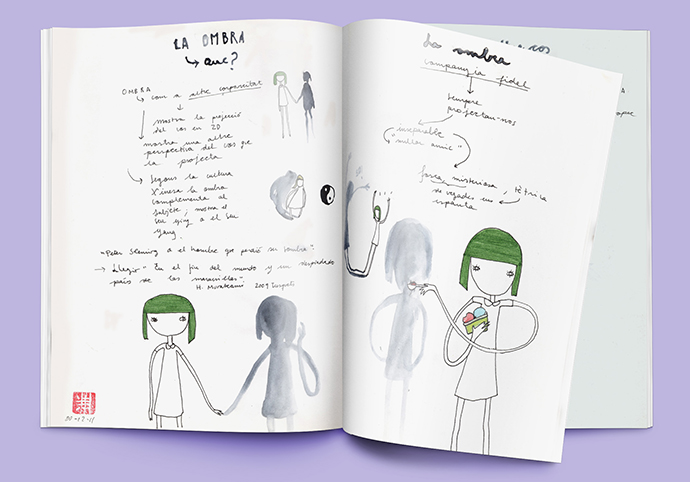 LA OMBRA
↳ que?
OMBRA
↳ com a altre corporeitat
mostra la projecció
del cos en 2D
mostra una altre
perspectiva del cos que
la projecta
Segons la cultura
Xinesa la ombra
complementa al
subjecte, mostra el
seu ying o el seu
yang.
"Peter Sleming o el hombre que perdió su sombra".
→ Llegir "En el fin del mundo y un despiadado
país de las maravillas"
H. Murakami 2009 Tusquets
La ombra
companyia fidel
sempre
projectan-nos
"inseparable
"millor amic"
força misteriosa, tètrica
de vegades ens
espanta
cos